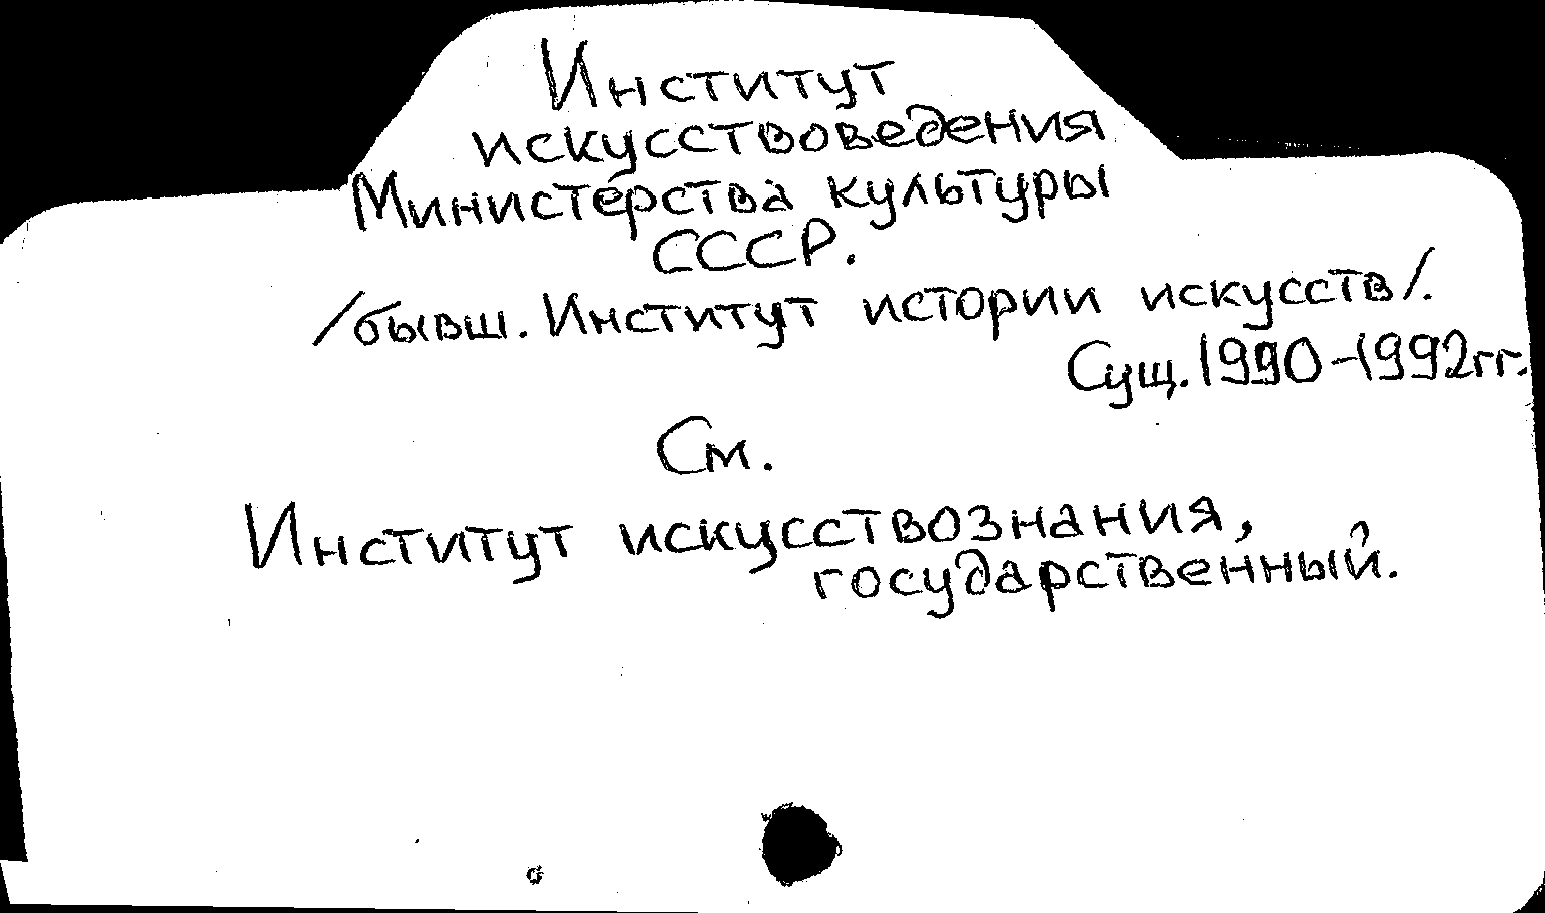 Институт
искусствоведения
Министерства культуры
СССР.
/бывш. Институт истории искусств/.
Сущ. 1990-1992гг.
См.
Институт искусствознания,
государственный.